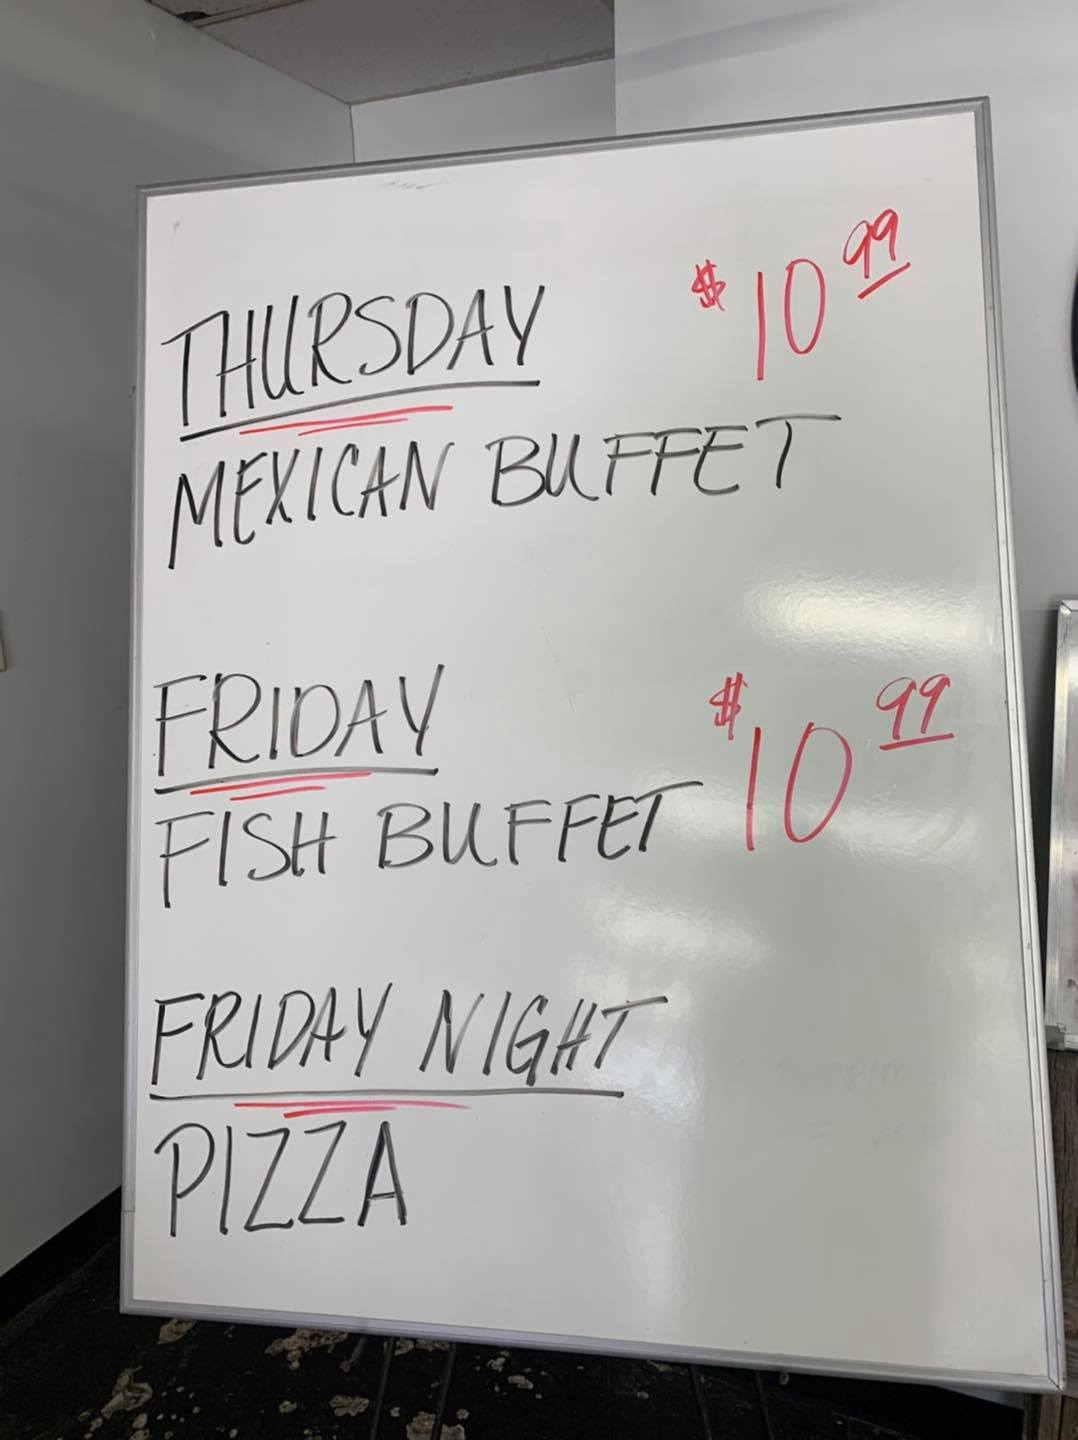 THURSDAY $10.99
MEXICAN BUFFET
FRIDAY
FISH BUFFET $10.99
FRIDAY NIGHT
PIZZA